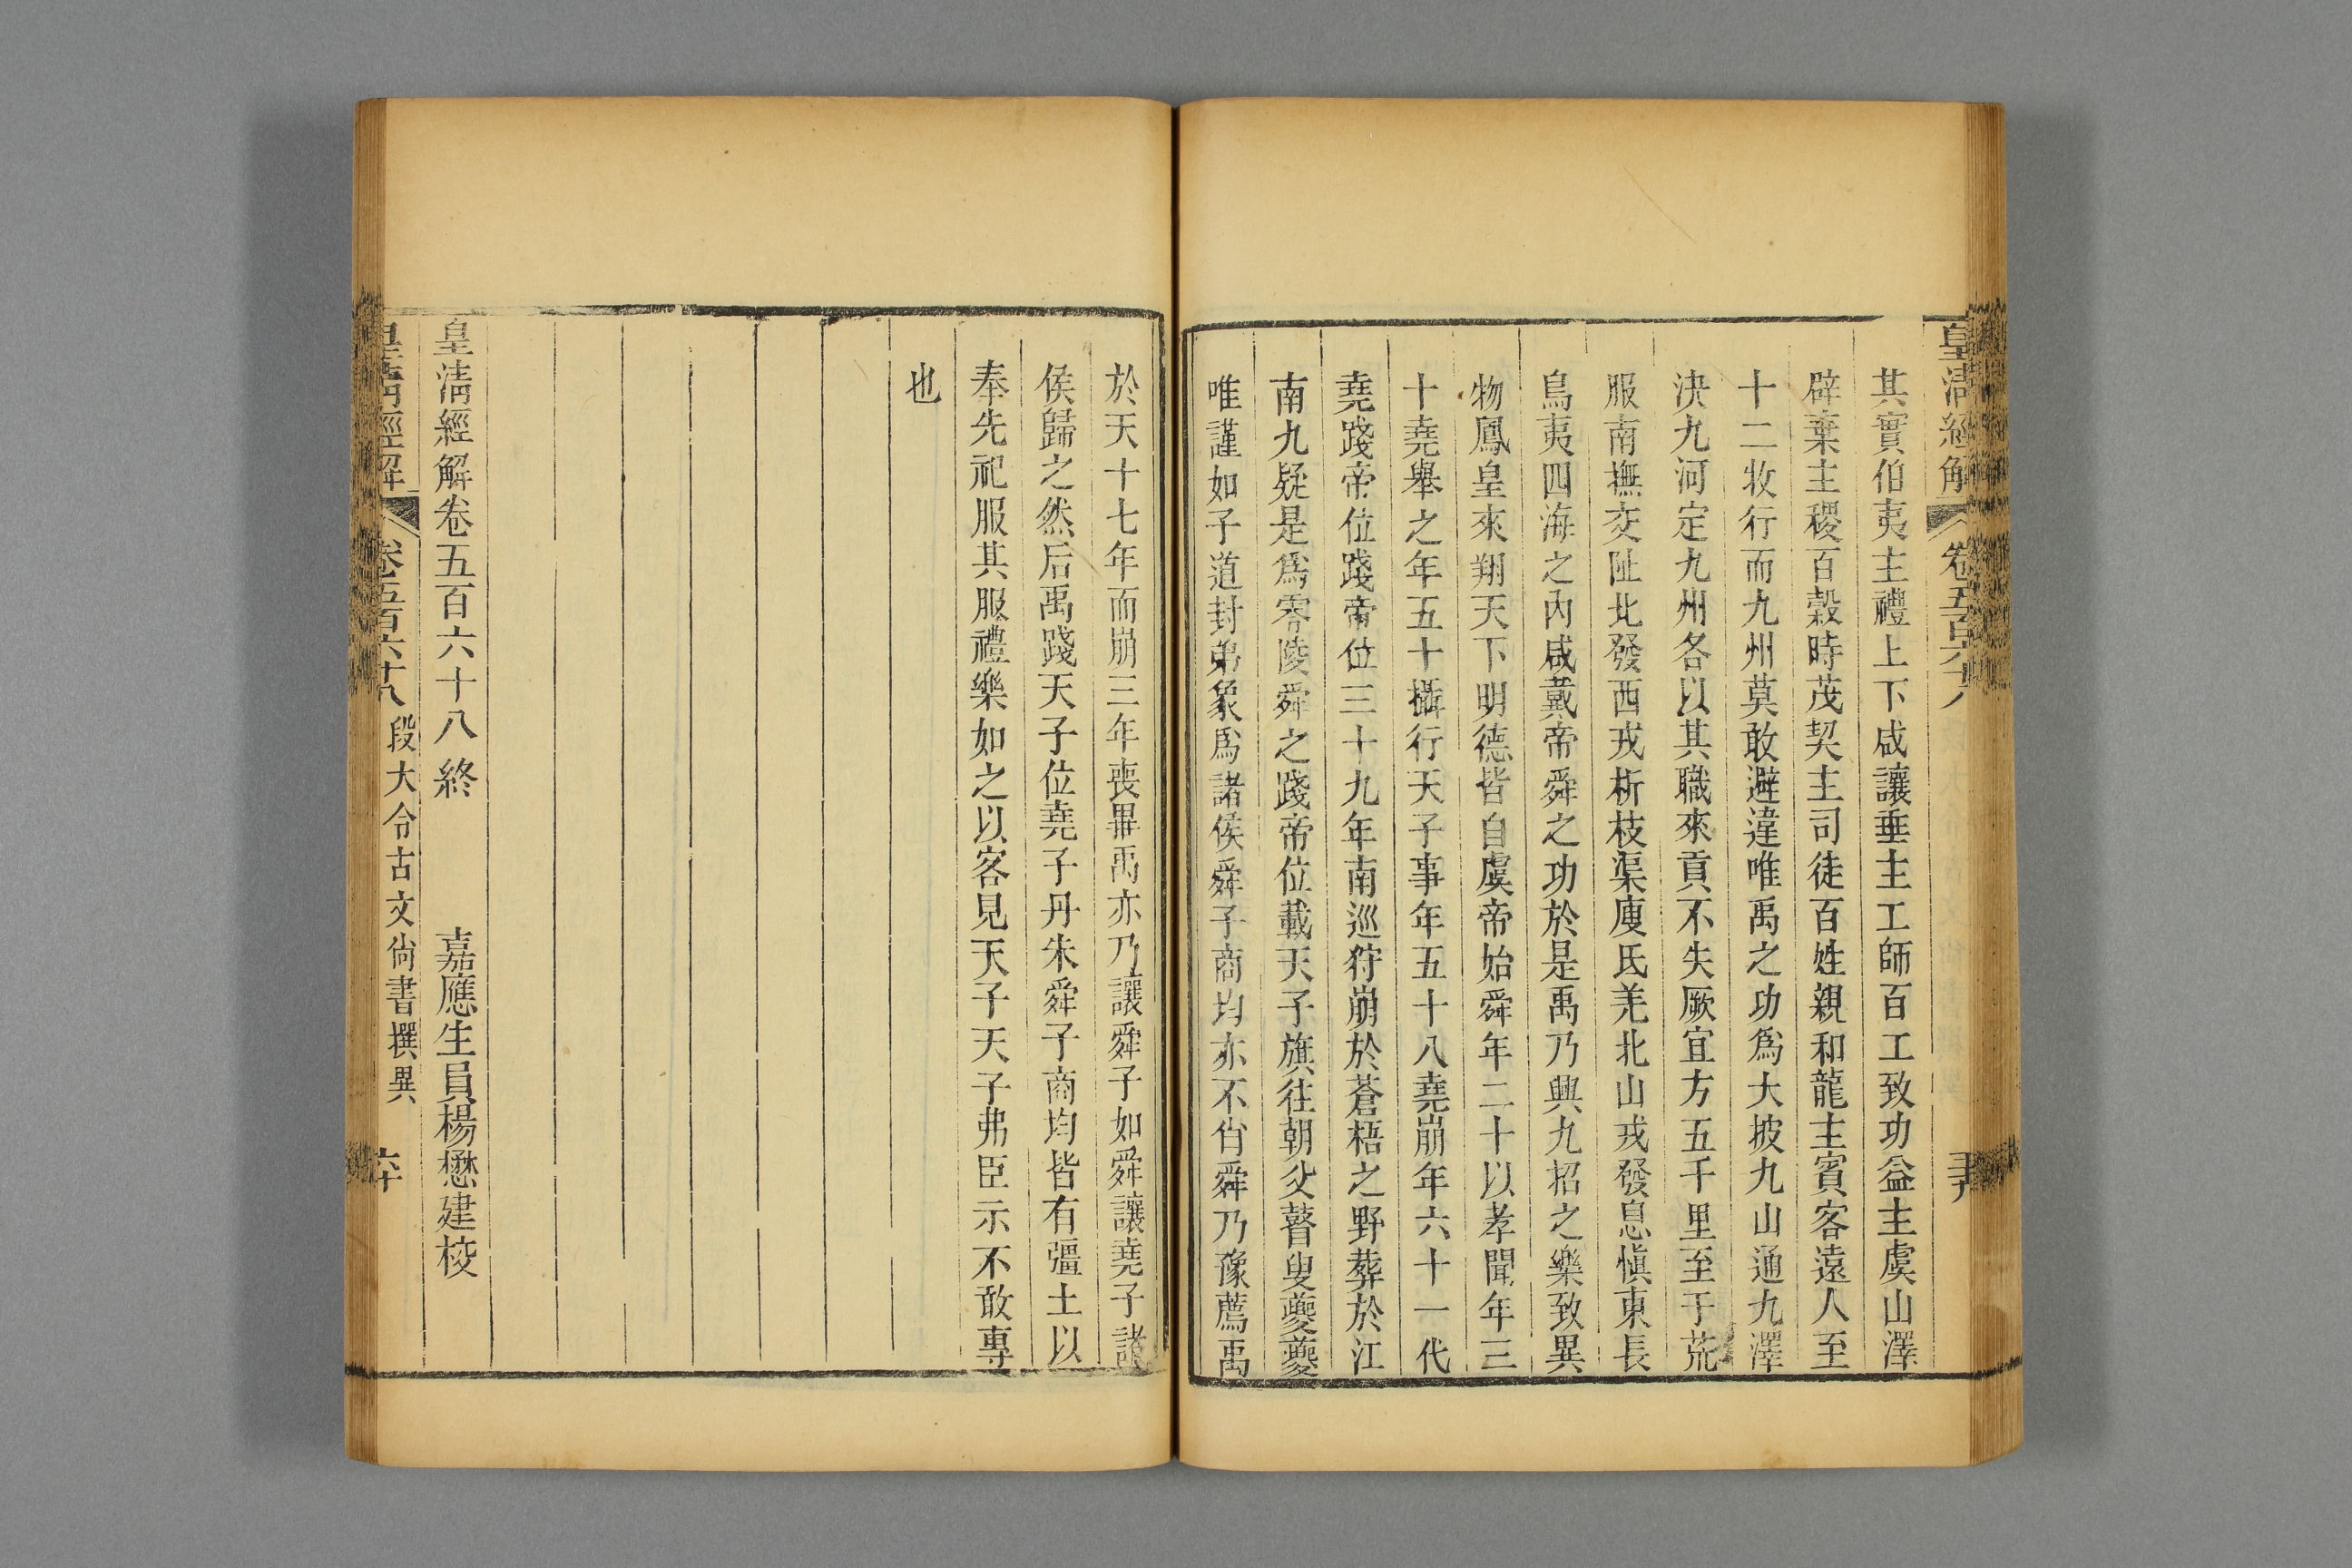 皇清經解 卷五百六十八 五十九
其實伯夷主禮上下咸讓垂主工師百工致功益主虞山澤
辟棄主稷百穀時茂契主司徒百姓親和龍主賓客遠人至
十二牧行而九州莫敢避違唯禹之功爲大披九山通九澤
決九河定九州各以其職來貢不失厥宜方五千里至于荒
服南撫交阯北發西戎析枝渠廋氐羌北山戎發息愼東長
鳥夷四海之內咸戴帝舜之功於是禹乃興九招之樂致異
物鳳皇來翔天下明德皆自虞帝始舜年二十以孝聞年三
十堯舉之年五十攝行天子事年五十八堯崩年六十一代
堯踐帝位踐帝位三十九年南巡狩崩於蒼梧之野葬於江
南九疑是爲零陵舜之踐帝位載天子旗往朝父瞽叟夔夔
唯謹如子道封弟象爲諸侯舜子商均亦不肖舜乃豫薦禹
於天十七年而崩三年喪畢禹亦乃讓舜子如舜讓堯子諸
侯歸之然后禹踐天子位堯子丹朱舜子商均皆有彊土以
奉先祀服其服禮樂如之以客見天子天子弗臣示不敢專
也
皇淸經解卷五百六十八終 嘉應生員楊懋建校
皇清經解 卷五百六十八 段大令古文尙書撰異 六十